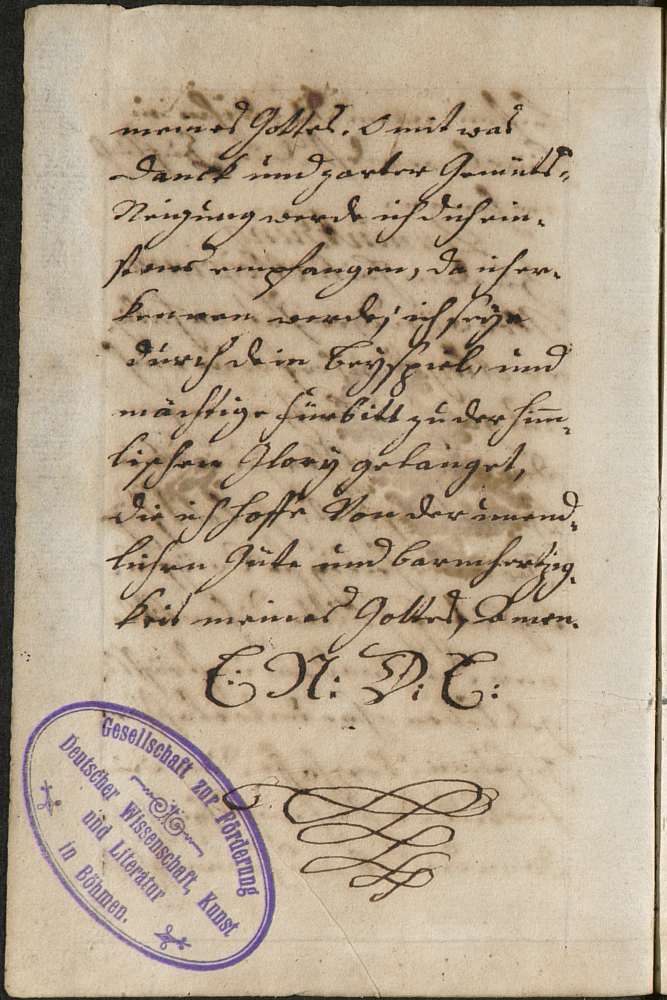 meines Gottes. O mit was
Danck und zarter Gemüts-
Neigung werde ich dich ein-
stens empfangen, da ich er-
kennen werde, ich seye
durch dein beyspiel, und
mächtige fürbitt zu der him̅-
lischen Glory gelanget,
die ich hoffe Von der unend-
lichen Güte und barmhertzig-
keit meines Gottes, Amen.
E: N: D: E:
Gesellschaft zur Förderung
Deutscher Wissenschaft, Kunst
und Literatur
in Böhmen.